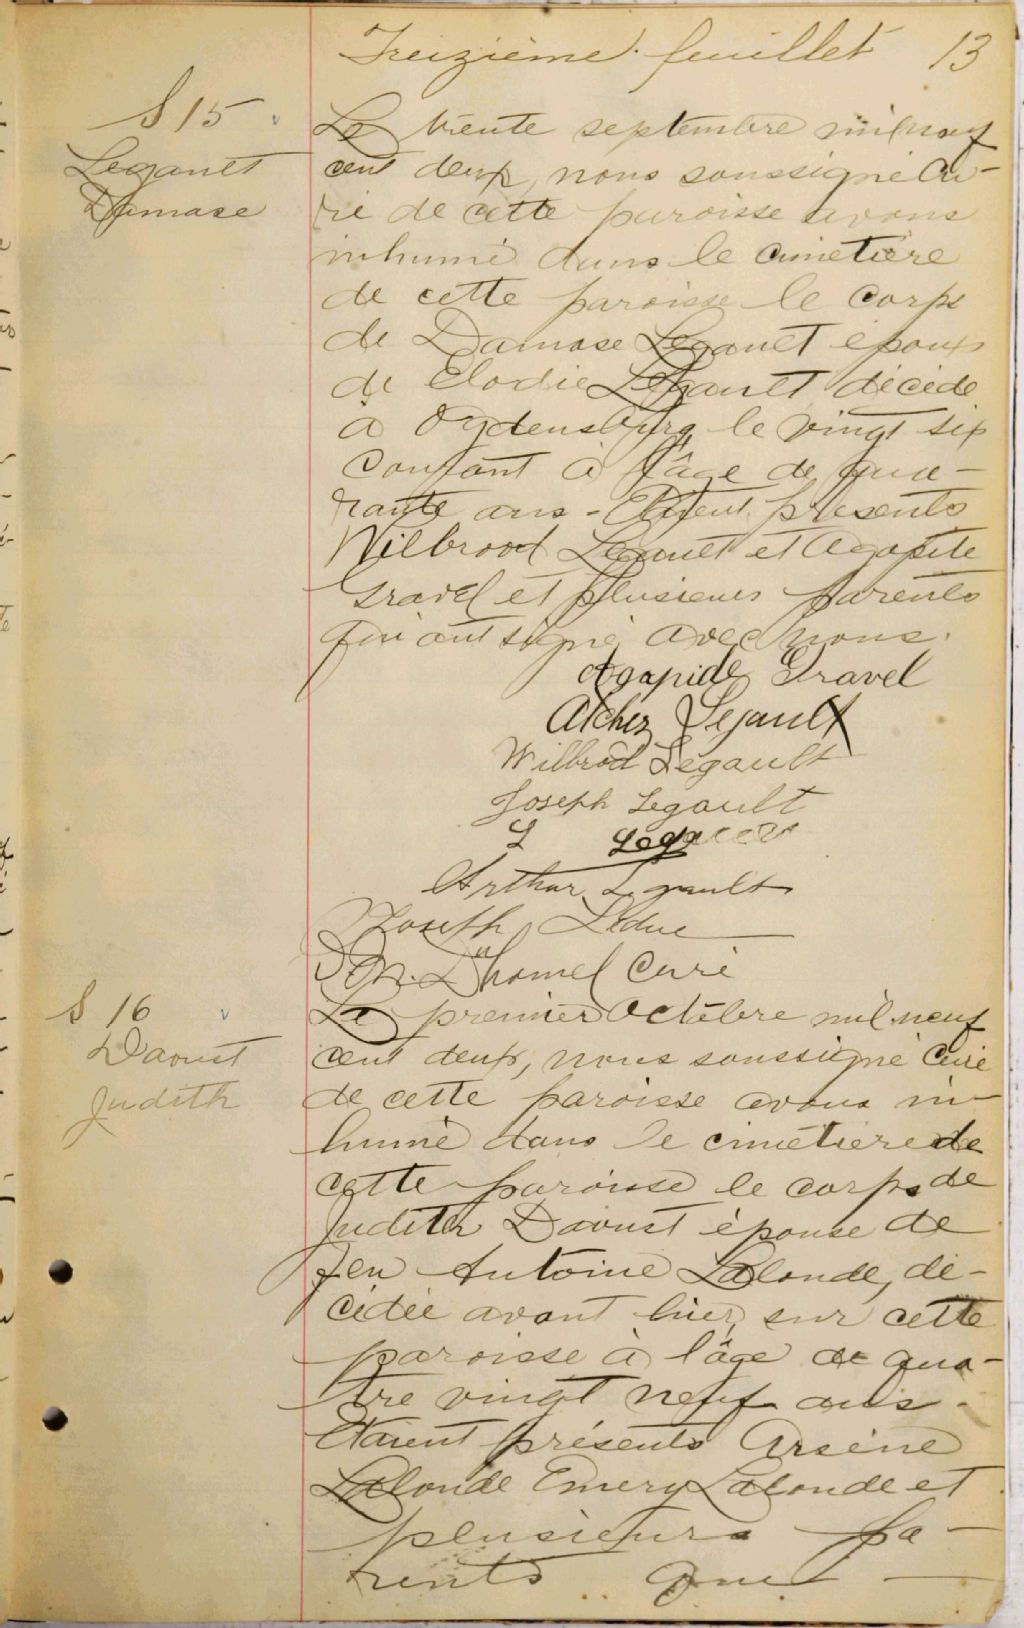 Treizième feuillet 13
S 15
Legault
Damase
Le trente septembre mil neuf
cent deux, nous soussigné Cu-
ré de cette paroisse avons
inhumé dans le cimetière
de cette paroisse le corps
de Damase Legault époux
de Elodie Legault décédé
à Ogdensburg le vingt six
courant à l'âge de qua-
rante ans - Etaient présents
Wilbrod Legault et Agapite
Gravel et plusieurs parents
qui ont signé avec nous.
Agapide Gravel
Legault
Wilbrod Légault
Joseph Legault
L Legault
Arthur Legault
Joseph Leduc
Curé
S 16
Daoust
Judith
Le premier Octobre mil neuf
cent deux, nous soussigné Curé
de cette paroisse avons in-
humé dans le cimetière de
cette paroisse le corps de
Judith Daoust épouse de
feu Antoine Lalonde, dé-
cédée avant hier, sur cette
paroisse à l'âge de qua-
tre vingt neuf ans -
Etaient présents Arsène
Lalonde Emery Lalonde et
plusieurs pa-
rents qui